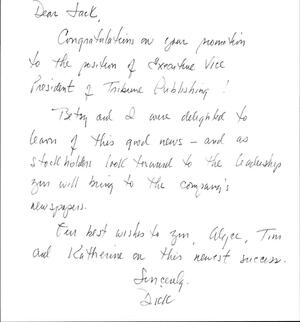 Dear Jack,
Congratulations on your promotion
to the position of Executive Vice
President of Tribune Publishing!
Betsy and I were delighted to
learn of this good news - and as
stockholders look forward to the leadership
you will bring to the company's
newspapers.
Our best wishes to you, Alyce, Tim
and Katherine on this newest success.
Sincerely,
Dick